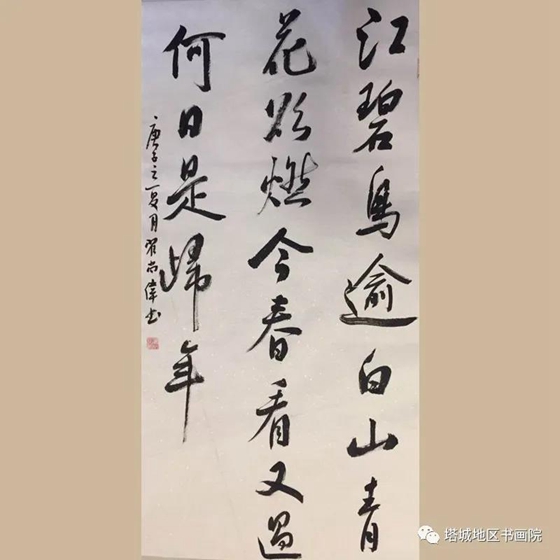 江碧鳥逾白山青
花欲燃今春看又過
何日是歸年
庚子之夏月翟尚偉书
塔城地区书画院